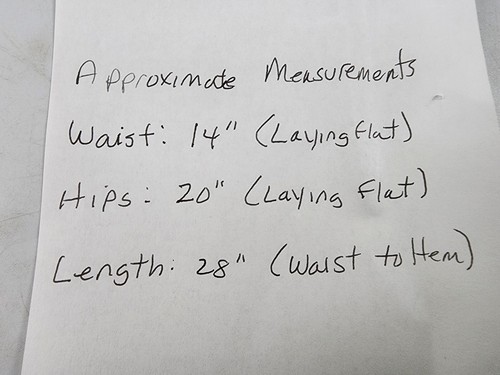 Approximate Measurements
Waist: 14" (Laying Flat)
Hips: 20" (Laying Flat)
Length: 28" (Waist to Hem)